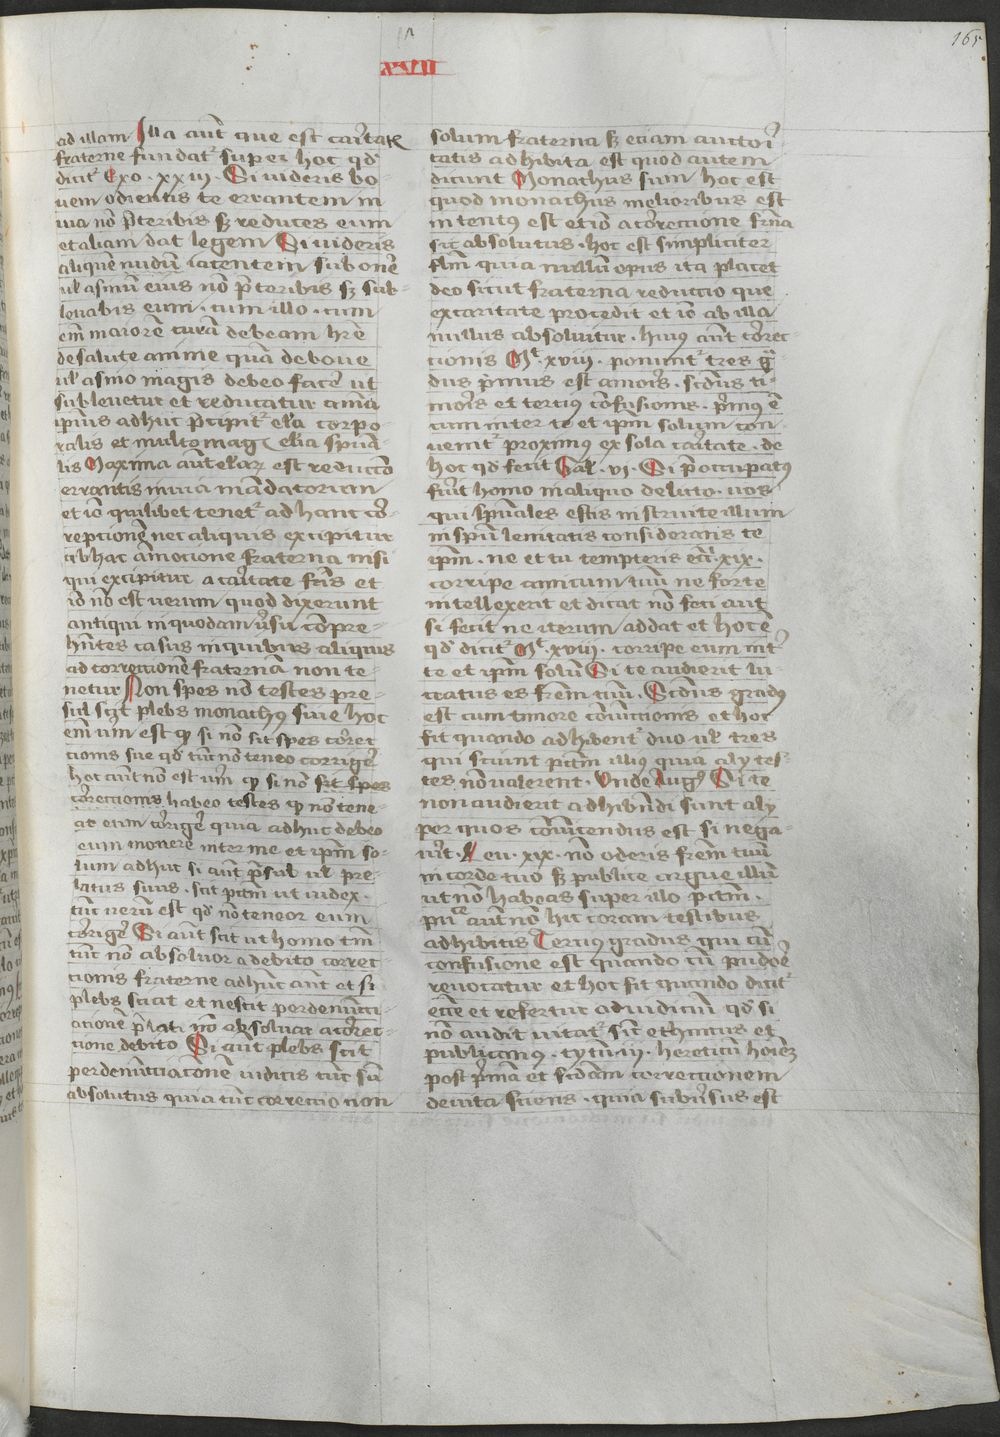 165
XXVII
ad illam Illa aūt que est caritatꝭ
fraterne fundat᷑ super hoc qd̄
dicit᷑ Exo · xxiii · Si videris bo-
uem odientis te errantem in
uia nō p̄teribis sꝫ reduces eum
et aliam dat legem Si videris
aliquē nudū iacentem sub onē
ul̓ asinū eius nō p̄teribis sꝫ sub-
leuabis eum · cum illo · cum
em̄ maiorē curā debeam hr̄e
de salute anime quā de boue
ul̓ asino magis debeo facē ut
subleuetur et reducatur anīa
ip̄ius adhuc p̄cipit᷑ el̓ia corpo-
ralis et multo magꝭ el̓ia spūa-
lis Maxima aūt el̓arꝝ est reductō
errantis in uia mādatorum
et iō quilibet tenet᷑ ad hanc cor-
reptionē nec aliquis excipitur
ab hac āmocione fraterna nisi
qui excipitur a caritate fr̄is et
iō nō est uerum quod dixerunt
antiqui in quodam ūsu cōpre-
hn̄tes casus in quibus aliquis
ad correctionē fraternā non te-
netur Non spes nō testes pre-
sul scit plebs monachꝰ siue hoc
em̄ um̄ est ꝙ si nō sit spes correc-
tionis sue qd̄ tūc nō teneo corrigē
hoc aūt nō est um̄ ꝙ si nō sit spes
correctionis habeo testes ꝙ nō tene-
at eum corrigē quia adhuc debeo
eum monere inter me et ip̄m so-
lum adhuc si aūt p̄sul ul̓ pre-
latus suus · scit pctm̄ ut iudex ·
tūc uerū est qd̄ nō teneor eum
corrigē Si aūt scit ut homo tm̄
tūc nō absoluor a debito correc-
tionis fraterne adhuc aūt et si
plebs sciat et nescit per denūci-
acionē p̄lati nō absoluat a correc-
tione debito Si aūt plebs scit
per denūciacionē iudicis tūc sū
absolutus quia tūc correctio non
solum fraterna sꝫ eciam auctori-
tatis adhibita est quod autem
dicunt Monachus sum hoc est
quod monachus melioribus est
intentus est et iō a correctione frn̄a
sit absolutus · hoc est simpliciter
flm̄ quia nullū opus ita placet
deo sicut fraterna reductio que
ex caritate procedit et iō ab illa
nullus absoluitur · huius aūt correc-
tionis Mt̓ xviii · ponunt᷑ tres gͣ-
dus p̄mus est amoris · scdūs ti-
moris et tercius cōfusionis · p̄mus ē
cum inter te et ip̄m solum con-
uenit᷑ proximus ex sola caritate · de
hoc qd̄ fecit Gal̓ · vi · Si p̄occupatꝰ
fuerit homo in aliquo delicto · uos
qui spūales estis instruite illum
in spū lenitatis considerans te
ip̄m · ne et tu tempteris ecc̄i · xix ·
corripe amicum tuū ne forte
intellexerit et dicat nō feci aut
si fecit ne iterum addat et hoc ē
qd̄ dicit᷑ Mt̓ xviii · corripe eum int̓
te et ip̄m solū Si te audierit lu-
cratus es frēm tuū · Scdūs gradꝰ
est cum timore cōuictionis et hoc
fit quando adhibent᷑ duo ul̓ tres
qui sciunt pctm̄ illiꝰ quia alij tes-
tes nō ualerent · Unde Augꝰ Si te
non audierit adhibendi sunt alij
per quos cōuincendus est si nega-
uerit · Leu · xix · nō oderis frēm tuū
in corde tuo sꝫ publice argue illū
ut nō habeas super illo pctm̄ ·
pu͡ce aūt nō hic coram testibus
adhibitis Tercius gradus qui cū
confusione est quando cū pudoē
reuocatur et hoc fit quando dicit᷑
ecc̄e et refertur ad iudiciū qd̄ si
nō audit uitat᷑ sic̄ ethnicus et
publicanus · tytū · iii · hereticū hoīeꝫ
post p̄mā et scdām correctionem
deuita sciens · quia subūsus est